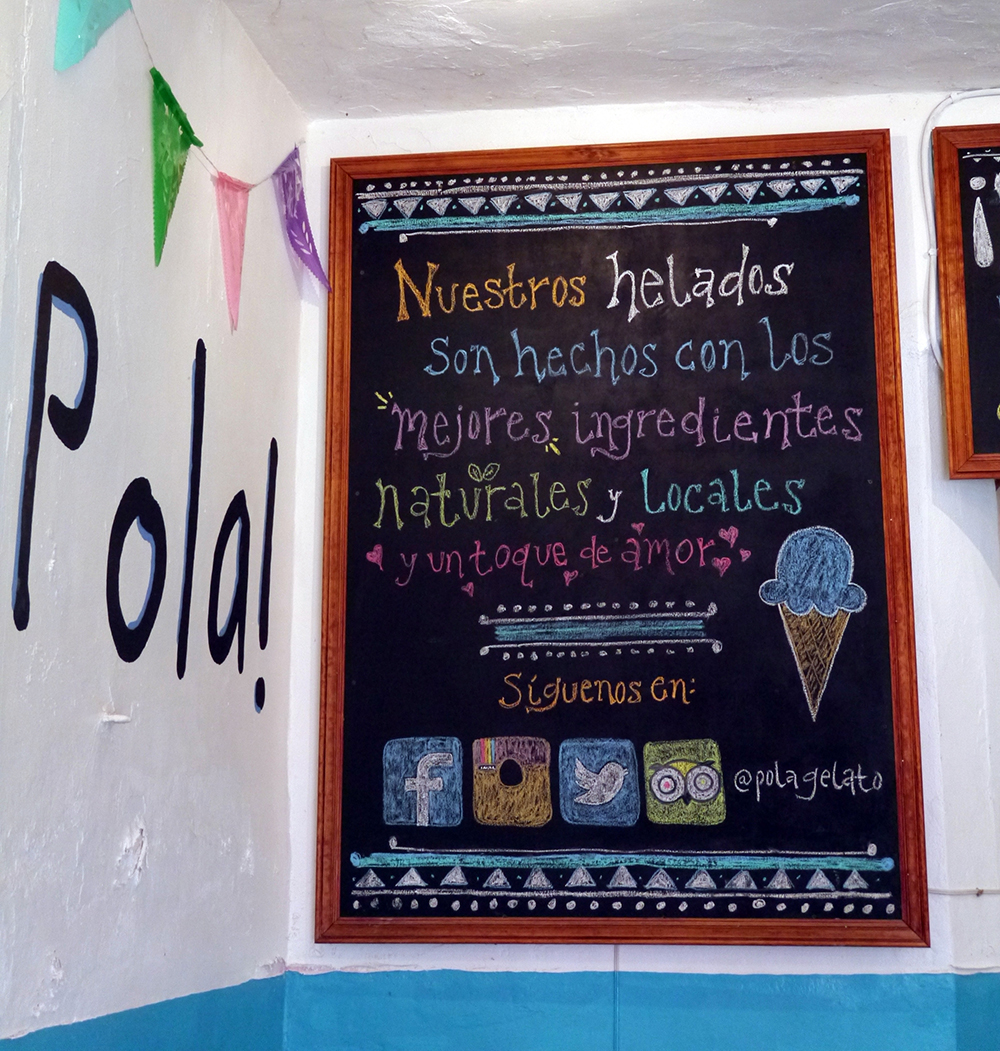 Pola!
Nuestros helados
son hechos con los
mejores ingredientes
naturales y locales
y un toque de amor
Síguenos en:
@polagelato
¡